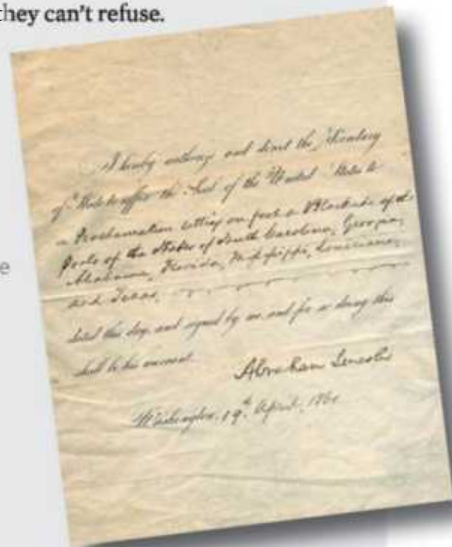 they can't refuse.
I hereby authorize and direct the Secretary
of State to affix the Seal of the United States to
a Proclamation setting on foot a Blockade of the
Ports of the States of South Carolina, Georgia,
Alabama, Florida, Mississippi, Louisiana,
and Texas,
dated this day, and signed by me and for so doing this
shall be his warrant.
Abraham Lincoln
Washington, 19th April, 1861